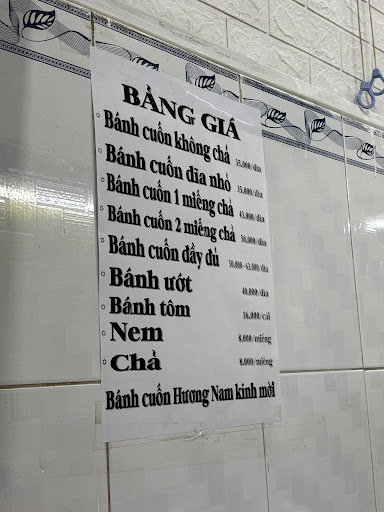 BẢNG GIÁ
Bánh cuốn không chả 35.000/đĩa
Bánh cuốn đĩa nhỏ 35.000/đĩa
Bánh cuốn 1 miếng chả 43.000/đĩa
Bánh cuốn 2 miếng chả 50.000/đĩa
Bánh cuốn đầy đủ 50.000-63.000/đĩa
Bánh ướt 40.000/đĩa
Bánh tôm 16.000/cái
Nem 8.000/miếng
Chả 8.000/miếng
Bánh cuốn Hương Nam kính mời